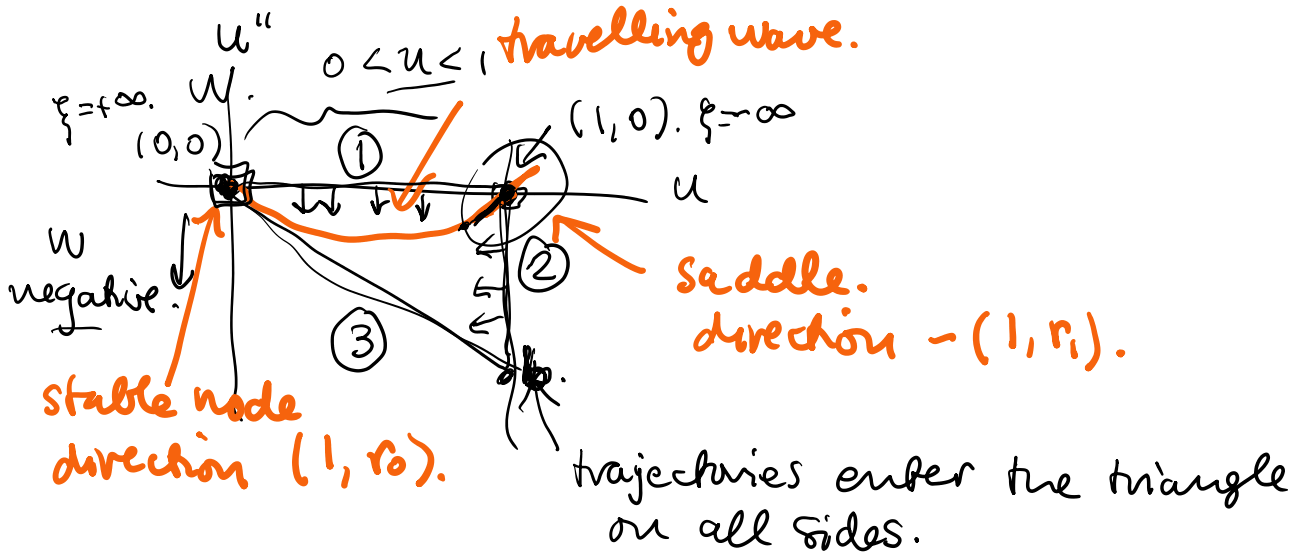 u'' travelling wave.
0 < u < 1
W.
ξ=+∞.
(0,0)
①
(1,0). ξ=-∞
u
W
negative.
②
saddle.
direction -(1, r₁).
③
stable node
direction (1, r₀).
trajectories enter the triangle
on all sides.